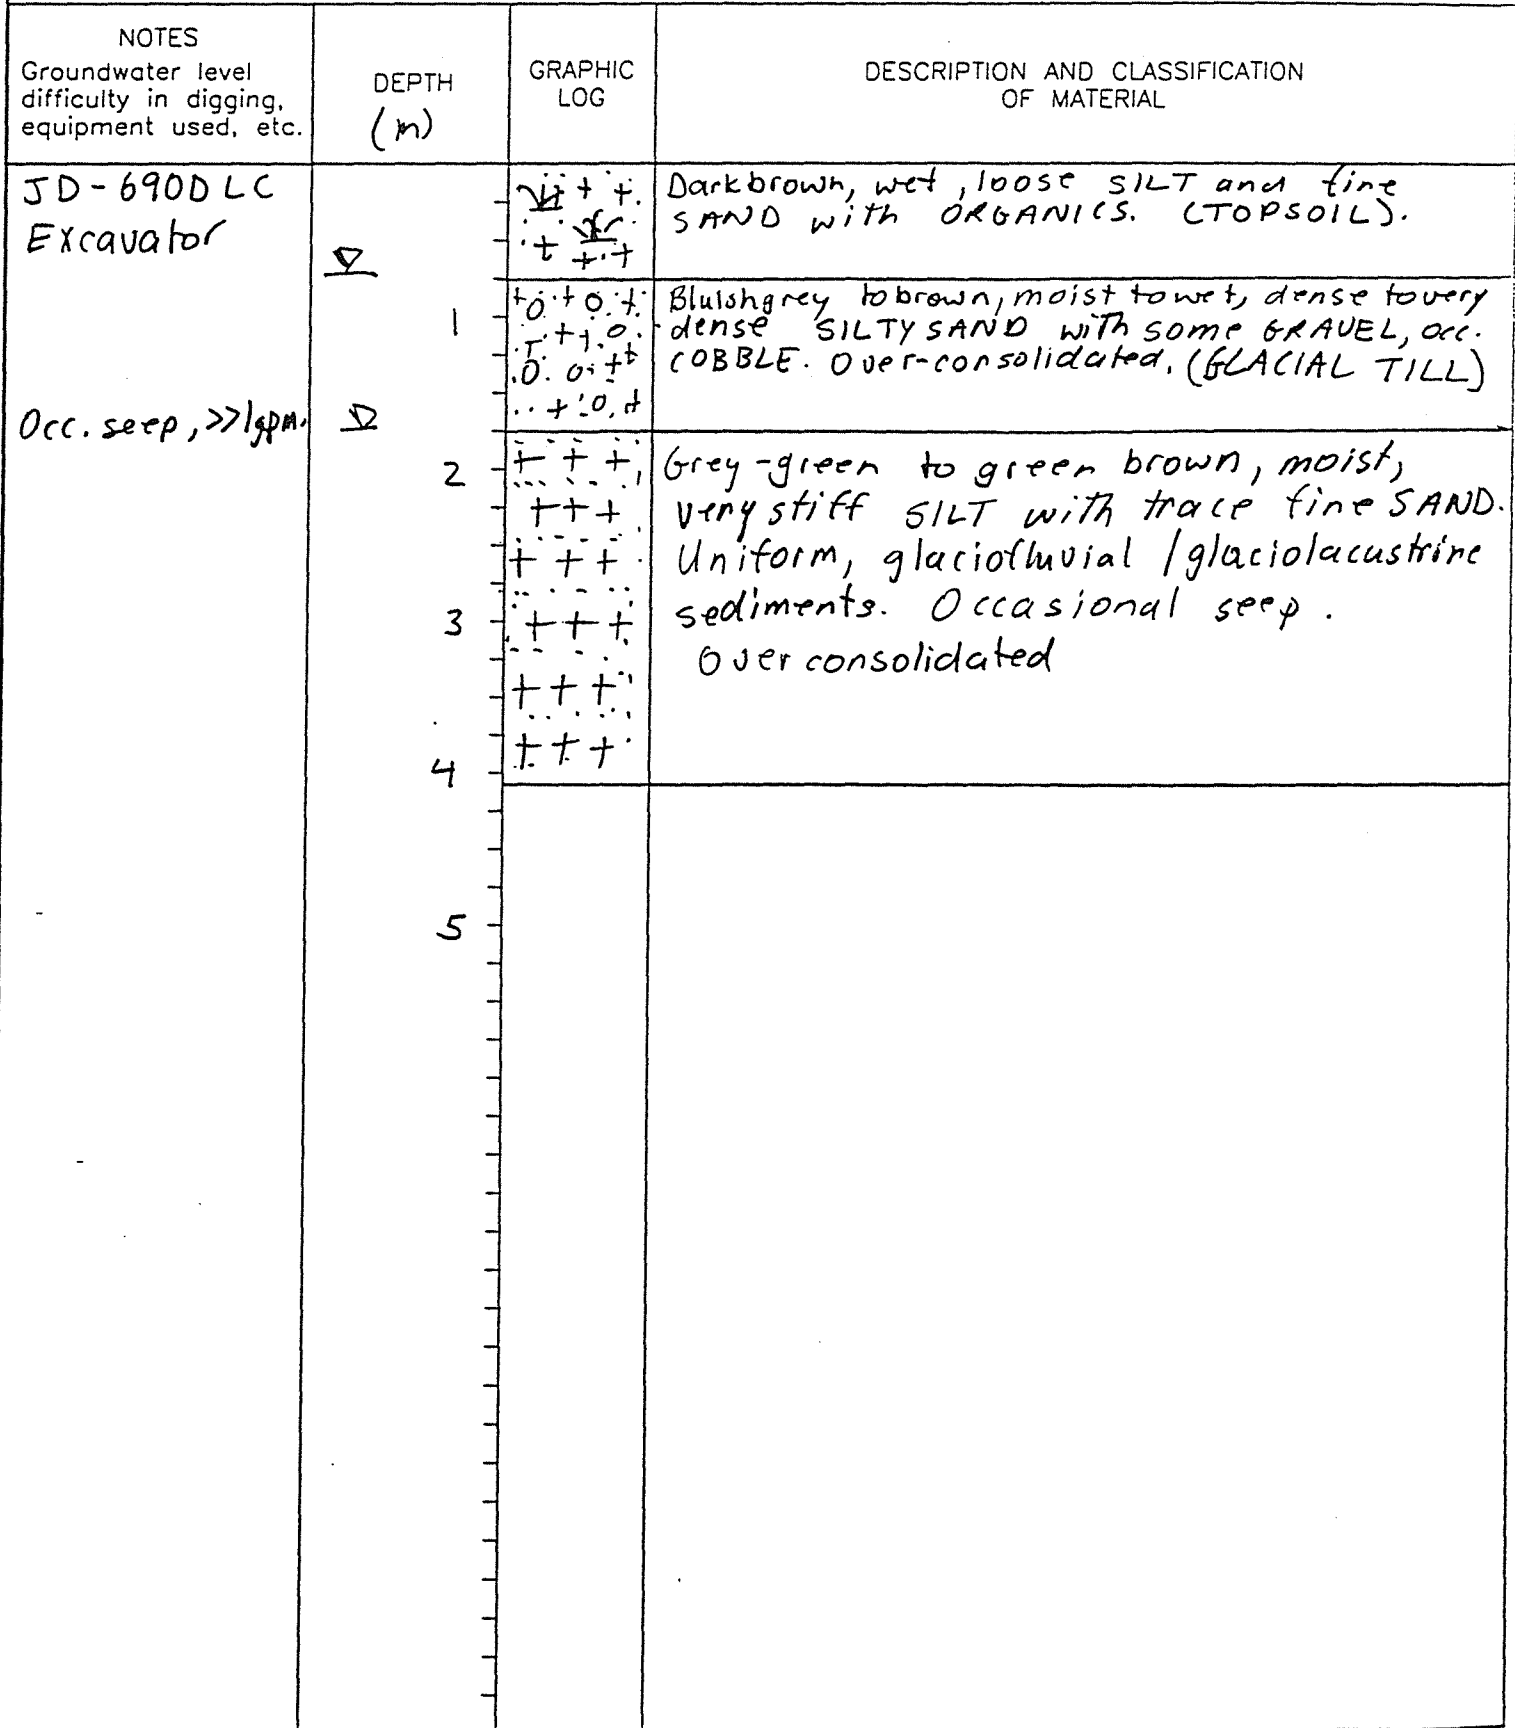 NOTES
Groundwater level
difficulty in digging,
equipment used, etc.
DEPTH
(m)
GRAPHIC
LOG
DESCRIPTION AND CLASSIFICATION
OF MATERIAL
JD-690D LC
Excavator
Dark brown, wet, loose SILT and fine
SAND with ORGANICS. (TOPSOIL).
1
Bluishgrey to brown, moist to wet, dense to very
dense SILTY SAND with some GRAVEL, occ.
COBBLE. Over-consolidated. (GLACIAL TILL)
Occ. seep, >>1gpm.
2
Grey-green to green brown, moist,
very stiff SILT with trace fine SAND.
Uniform, glaciofluvial / glaciolacustrine
3
sediments. Occasional seep.
Over consolidated
4
5